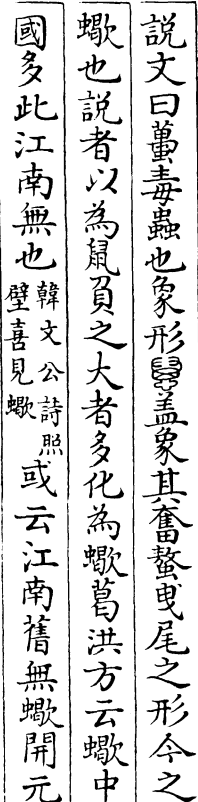 說文曰蠆毒蟲也象形𧓽蓋象其奮螯曳尾之形今之
蠍也說者以為鼠負之大者多化為蠍葛洪方云蠍中
國多此江南無也韓文公詩照壁喜見蠍或云江南舊無蠍開元